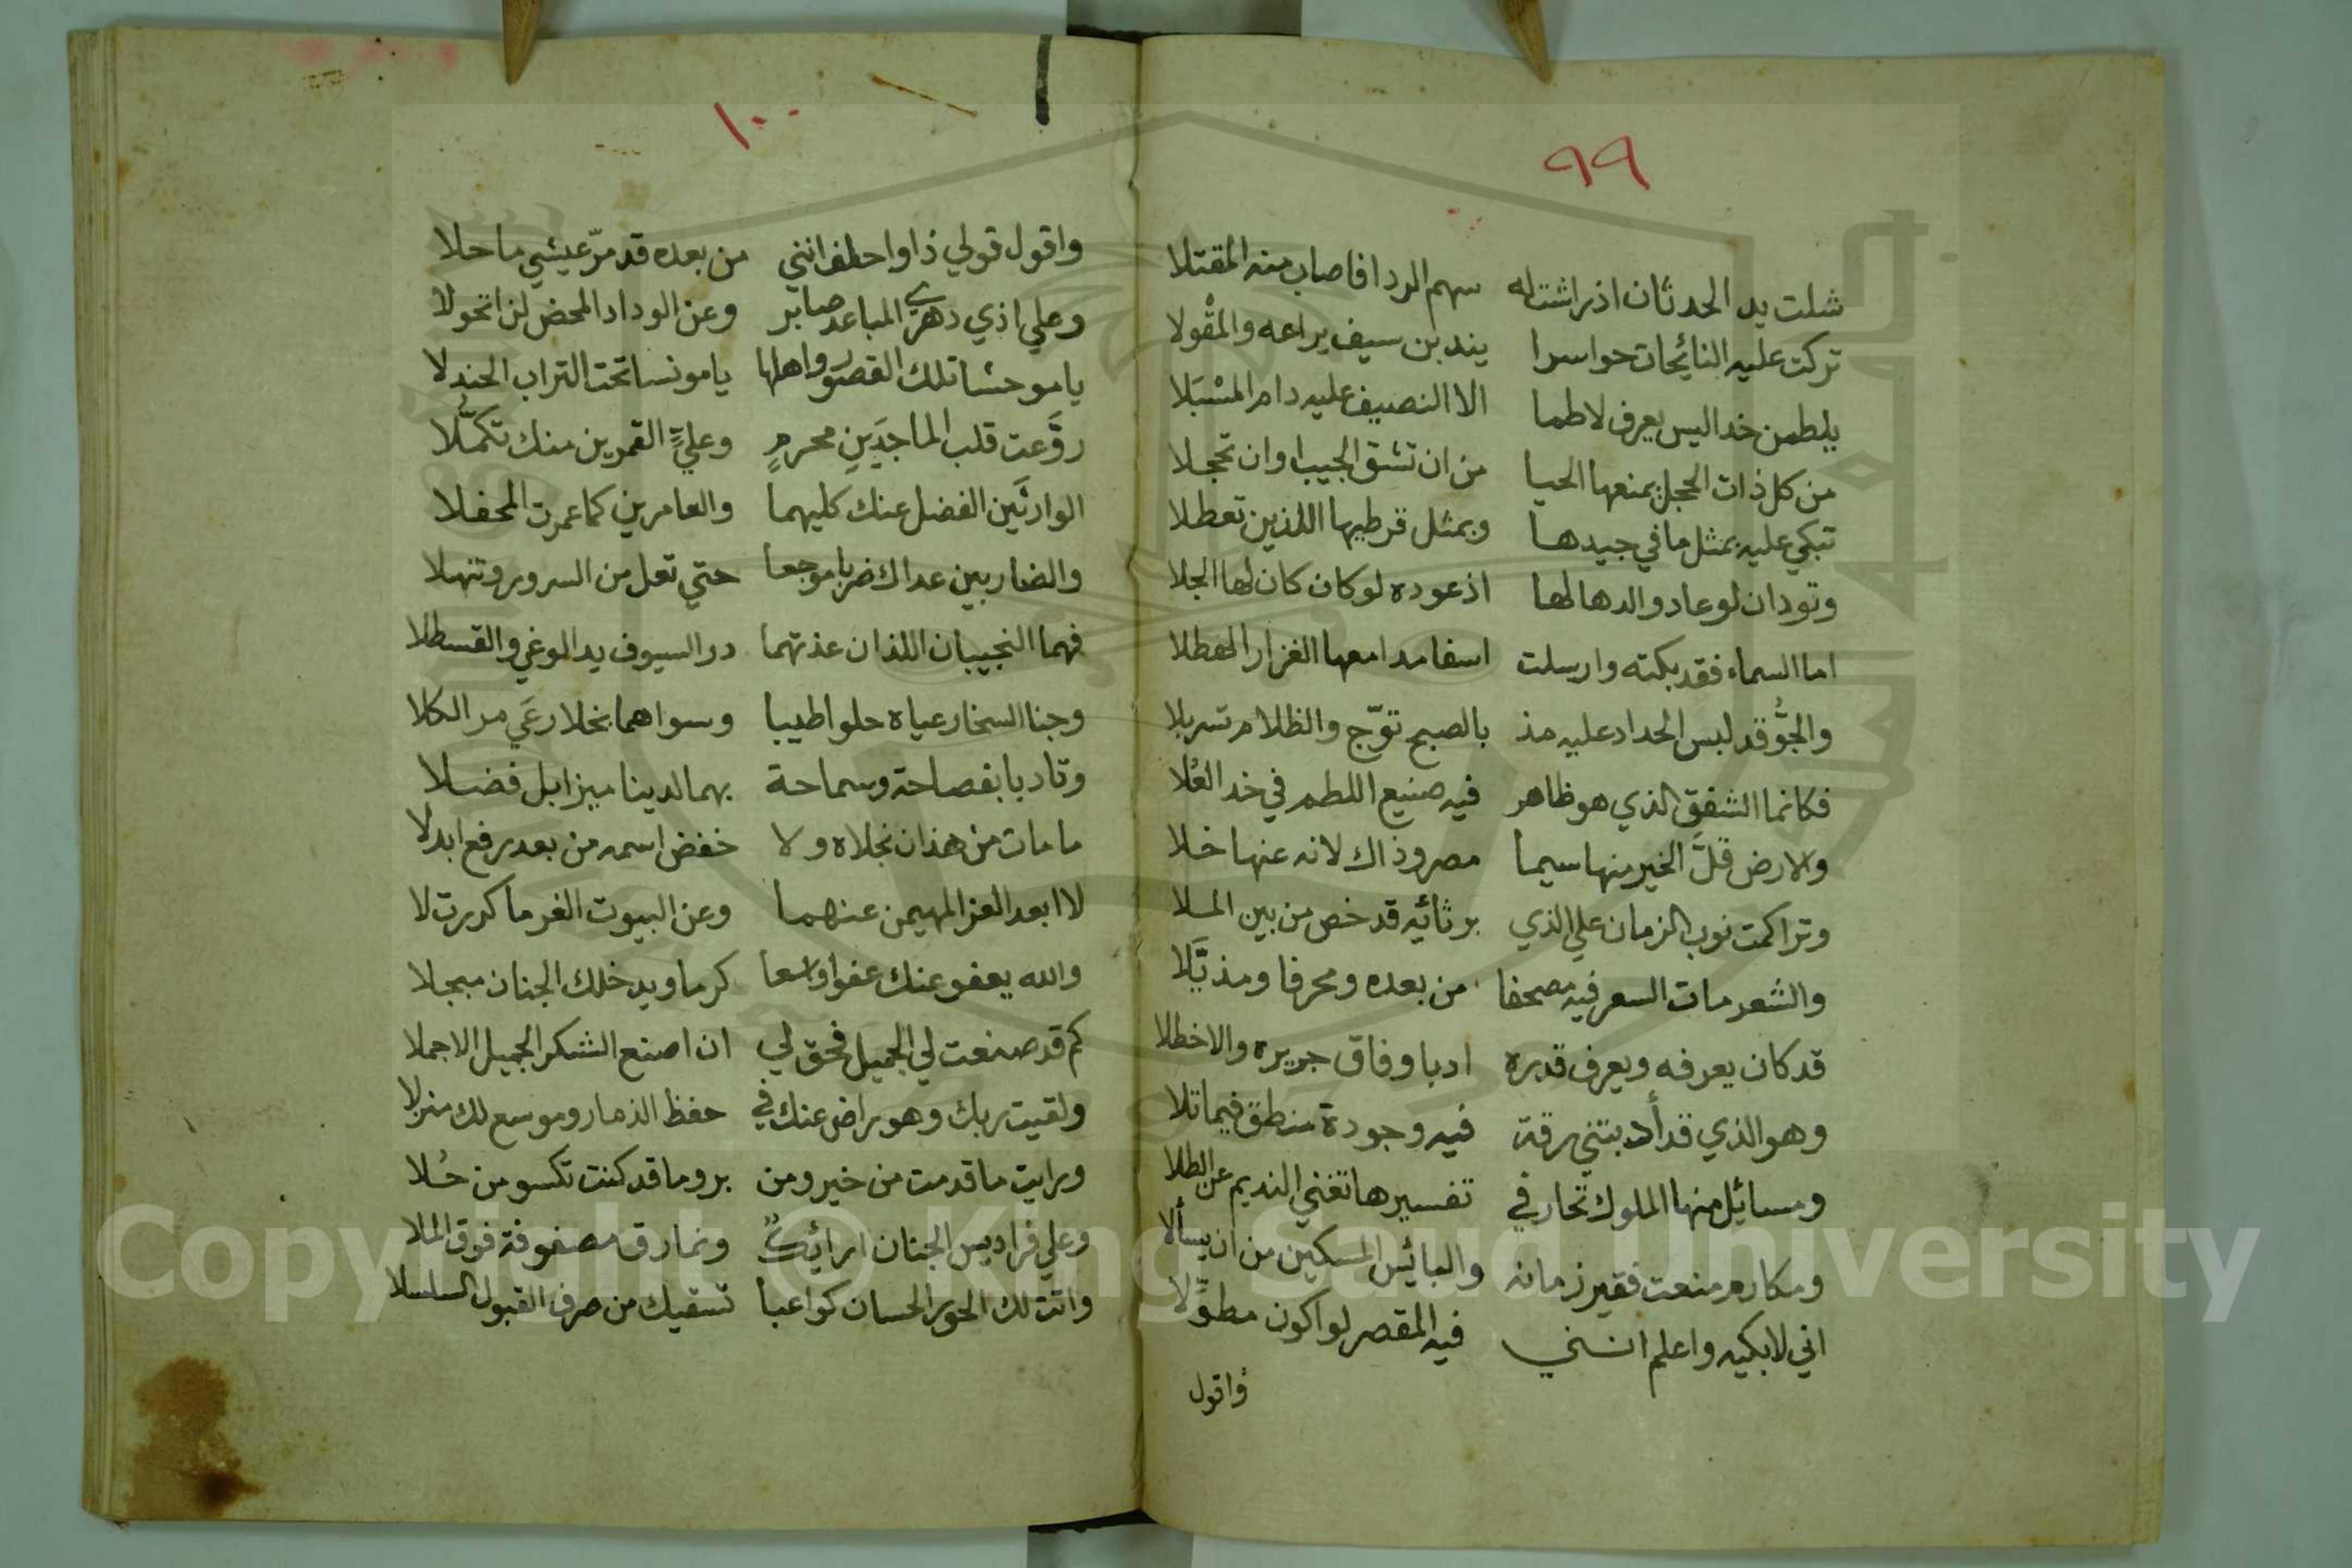 ٩٩
شلت يد الحدثان اذ راشت له سهم الردا فاصاب منه المقتلا
تركت عليه النائحات حواسرا يندبن سيف يراعه والمقْولا
يلطمن خدا ليس يعرف لاطما الا النصيف عليه دام المسْبَلا
من كل ذات الحجل يمنعها الحيا من ان تشق الجيب او ان تحجلا
تبكي عليه بمثل ما في جيدها وبمثل قرطيها اللذين تعطلا
وتود ان لو عاد والدها لها اذ عوده لو كان كان لها الجلا
اما السماء فقد بكته وارسلت اسفا مدامعها الغزار الهطلا
والجوُّ قد لبس الحداد عليه مذ بالصبح توّج والظلام تسربلا
فكانما الشفق الذي هو ظاهر فيه صنيع اللطم في خد العُلا
والارض قلَّ الخير منها سيما مصر وذاك لانه عنها خلا
وتراكمت نوب الزمان علي الذي برثائيه قد خص من بين الملا
والشعر مات السعر فيه مصحفا من بعده ومحرفا ومذيَّلا
قد كان يعرفه ويعرف قدره ادبا وفاق جريره والاخطلا
وهو الذي قد أدبتني رقة فيه وجودة منطق فيما تلا
ومسائيل منها الملوك تحار في تفسيرها تغني النديم عن الطلا
ومكارم منعت فقير زمانه والبائيس المسكين من ان يسألا
اني لابكيه واعلم انني فيه المقصر لو اكون مطوِّلا
واقول
١٠٠
واقول قولي ذا واحلف انني من بعده قد مرّ عيشي ما حلا
وعلي اذي دهري المباعد صابر وعن الوداد المحض لن اتحولا
يا موحشا تلك القصور واهلها يا مونسا تحت التراب الجندلا
روَّعت قلب الماجدَينِ محرمٍ وعليٍّ القمرين منك تكمُّلا
الوارثَين الفضل عنك كليهما والعامرين كما عمرت المحفلا
والضاربين عداك ضربا موجعا حتي تعل من السرور وتنهلا
فهما النجيبان اللذان عذتهما در السيوف يد الوغي والقسطلا
وجنا السخا رعياه حلوا طيبا وسواهما بخلا رعَي مر الكلا
وتادبا بفصاحة وسماحة بهما لدينا ميزا بل فضلا
ما مات من هذان نجلاه ولا خفض اسمه من بعد رفع ابدلا
لا ابعد العز المهيمن عنهما وعن البيوت الغر ما كدرت لا
والله يعفو عنك عفوا واسعا كرما ويدخلك الجنان مبجلا
كم قد صنعت لي الجميل فحق لي ان اصنع الشكر الجميل الاجملا
ولقيت ربك وهو راض عنك في حفظ الذمار وموسع لك منزلا
ورايت ما قدمت من خير ومن بر وما قد كنت تكسو من حُلا
وعلي فراديس الجنان ارائيكٌ ونمارق مصفوفة فوق الملا
واتت لك الحور الحسان كواعبا تسقيك من صرف القبول السلسلا
Copyright © King Saud University